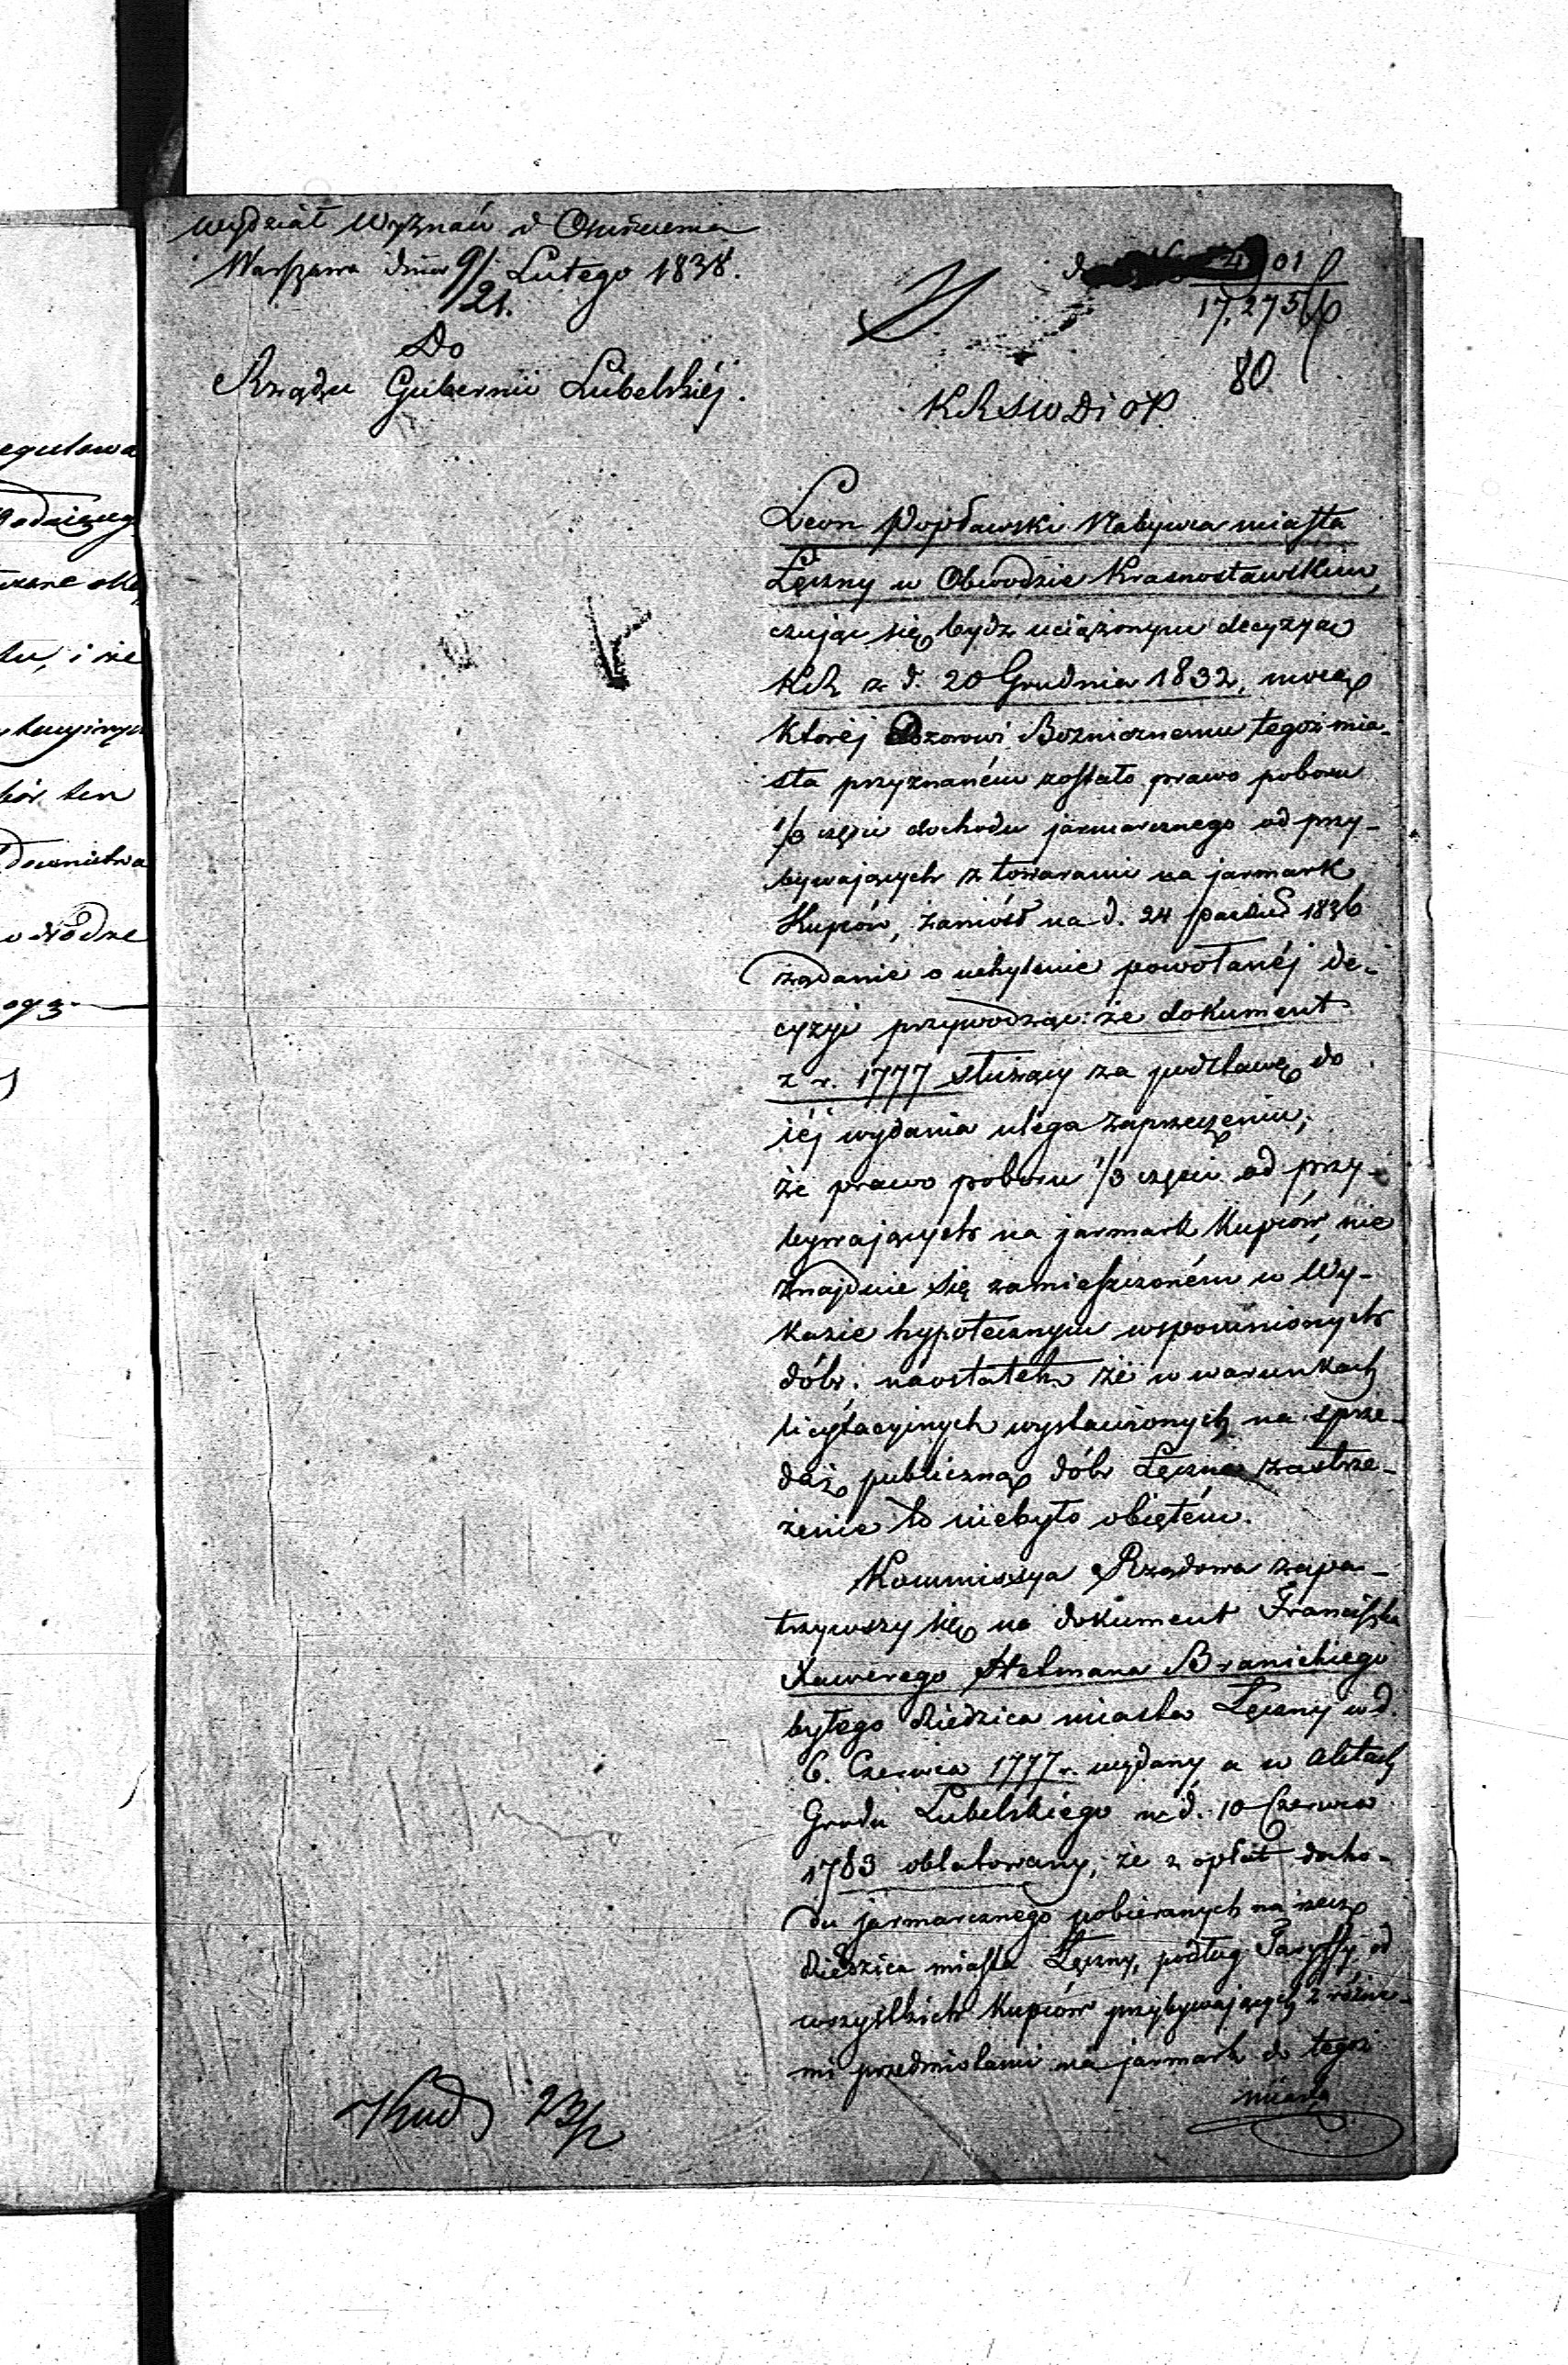 Wydział Wyznań i Oświecenia
Warszawa dnia 9/21. Lutego 1838.
Do
Rządu Gubernii Lubelskiéj.
01
17,275
80
KRSWDiOP
Leon Popławski Nabywca miasta
Łęczny w Obwodzie Krasnostawskim,
czując się bydz uciążonym decyzyą
KR z d. 20 Grudnia 1832, mocą
któréj Dozorowi Bożnicznemu tegoż mia-
sta przyznaném zostało prawo poboru
1/3 części dochodu jarmarcznego od przy-
bywających z towarami na jarmark
Kupców, zaniósł na d. 24 Paźdz 1836
żądanie o uchylenie powołanéj de-
cyzyi przywodząc: że dokument
z r. 1777 służący za podstawę do
iéj wydania ulega zaprzeczeniu;
że prawo poboru 1/3 części od przy-
bywających na jarmark Kupców, nie
znajduie się zamieszczoném w Wy-
kazie hypotecznym wspomnionych
dóbr; naostatek że w warunkach
licytacyinych wystawionych na sprze-
daż publiczną dóbr Łęczna zastrze-
żenie to niebyło obiętém.
Kommissya Rządowa zapa-
trzywszy się na dokument Franciszka
Xawerego Hetmana Branickiego
byłego dziedzica miasta Łęczny w d.
6. Czerwca 1777 r. wydany a w Aktach
Grodu Lubelskiego w d. 10 Czerwca
1783 oblatowany; że z opłat docho-
du jarmarcznego pobieranych na rzecz
dziedzica miasta Łęczny, podług Taryffy od
wszystkich Kupców przybywających z różne-
mi przedmiotami na jarmark do tegoż
miasta
23/2
egulowa
tu, i że
bór ten